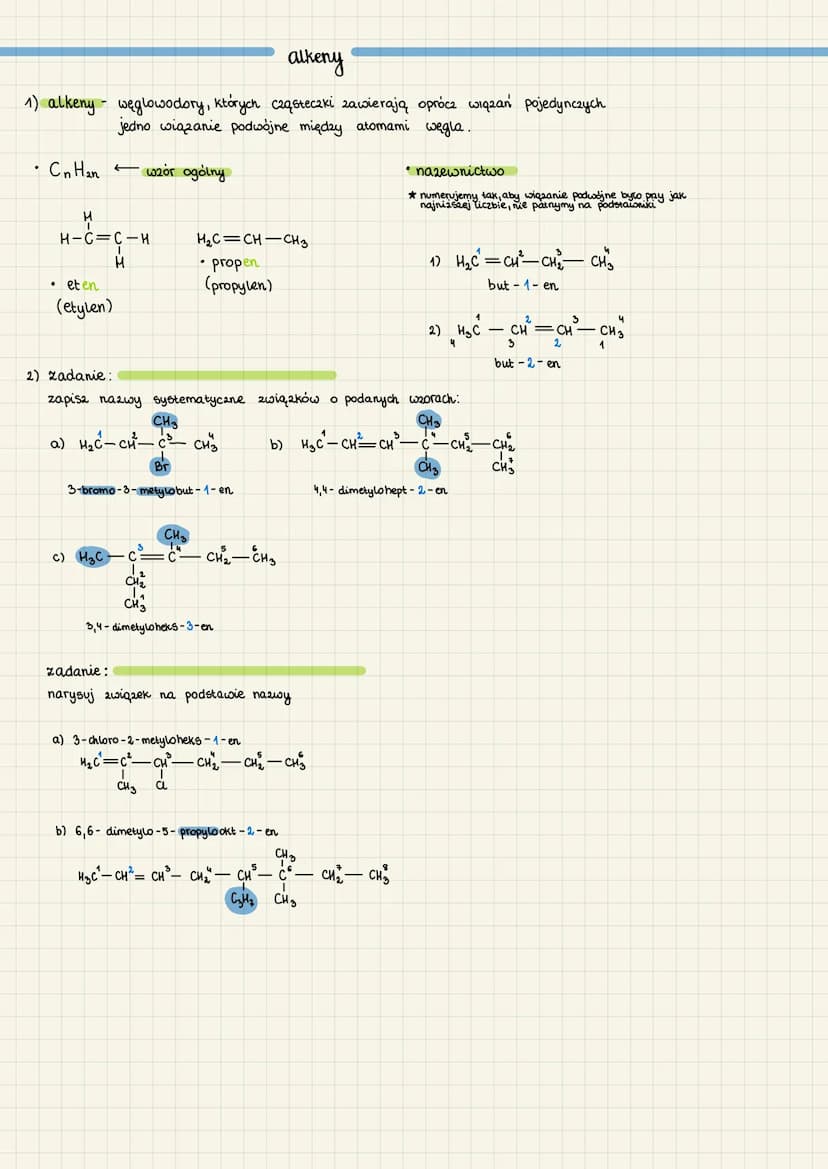 alkeny
1) alkeny - węglowodory, których cząsteczki zawierają oprócz wiązań pojedynczych
jedno wiązanie podwójne między atomami węgla.
• CnH2n ← wzór ogólny
H
H-C=C-H
H
• eten
(etylen)
H2C=CH-CH3
• propen
(propylen)
• nazewnictwo
* numerujemy tak, aby wiązanie podwójne było przy jak
najniższej liczbie, nie patrzymy na podstawniki
1) H2C¹=CH²-CH2³-CH3⁴
but-1-en
2) H3C¹-CH²=CH³-CH3⁴
4 3 2 1
but-2-en
2) zadanie:
zapisz nazwy systematyczne związków o podanych wzorach:
CH3
a) H2C¹-CH²-C³-CH3⁴
Br
3-bromo-3-metylobut-1-en
CH3
b) H3C¹-CH²=CH³-C⁴-CH2⁵-CH2⁶
CH3 CH3⁷
4,4-dimetylohept-2-en
CH3
c) H3C-C³=C⁴-CH2⁵-CH3⁶
CH2²
CH3¹
3,4-dimetyloheks-3-en
zadanie:
narysuj związek na podstawie nazwy
a) 3-chloro-2-metyloheks-1-en
H2C¹=C²-CH³-CH2⁴-CH2⁵-CH3⁶
CH3 Cl
b) 6,6-dimetylo-5-propylookt-2-en
CH3
H3C¹-CH²=CH³-CH2⁴-CH⁵-C⁶-CH2⁷-CH3⁸
C3H7 CH3